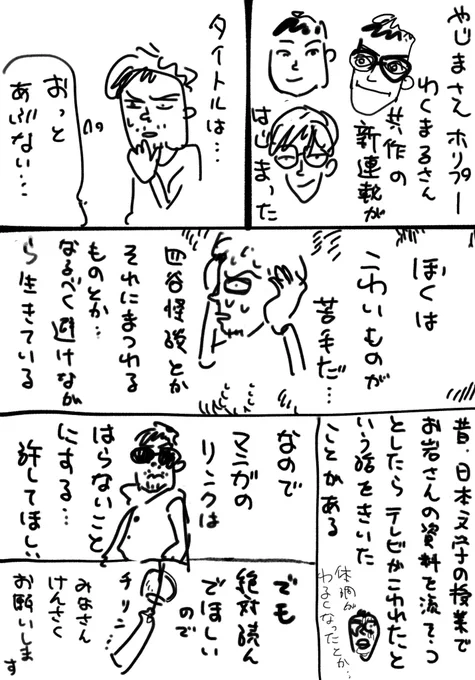 やじまさん ホリプー
わくまるさん
共作の
新連載が
はじまった
タイトルは…
おっと
あぶない…
ぼくは
こわいものが
苦手だ…
四谷怪談とか
それにまつわる
ものとか…
なるべく避けなが
ら生きている
昔、日本文学の授業で
お岩さんの資料を流そう
としたらテレビがこわれた、と
いう話をきいた
ことがある
体調が
わるくなったとか…
なので
マンガの
リンクは
はらないこと
にする…
許してほしい
でも
絶対読ん
でほしい
ので
チリン…
みなさん
けんさく
お願いしま
す